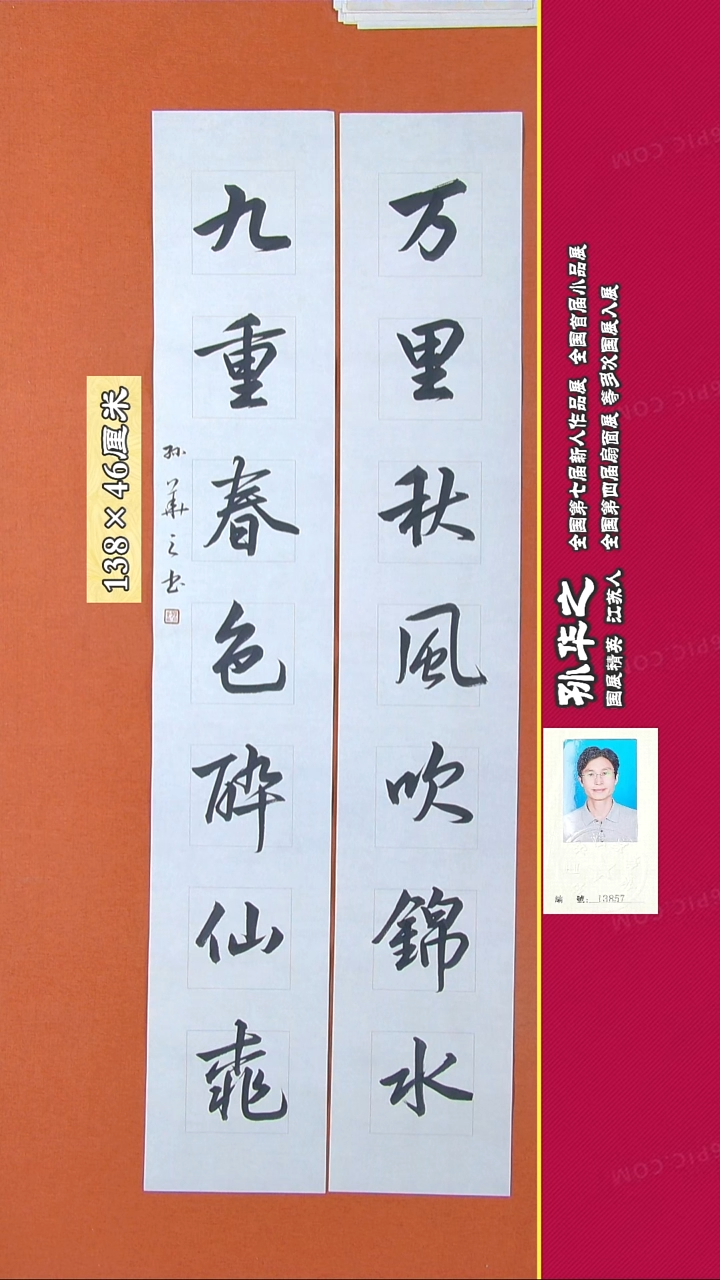 万里秋風吹錦水
九重春色醉仙桃
孙華之书
138×46厘米
孙华之
國展精英 江苏人
全國第七届新人作品展 全國首届小品展
全國第四届扇面展 等多次國展入展
编 號：13857